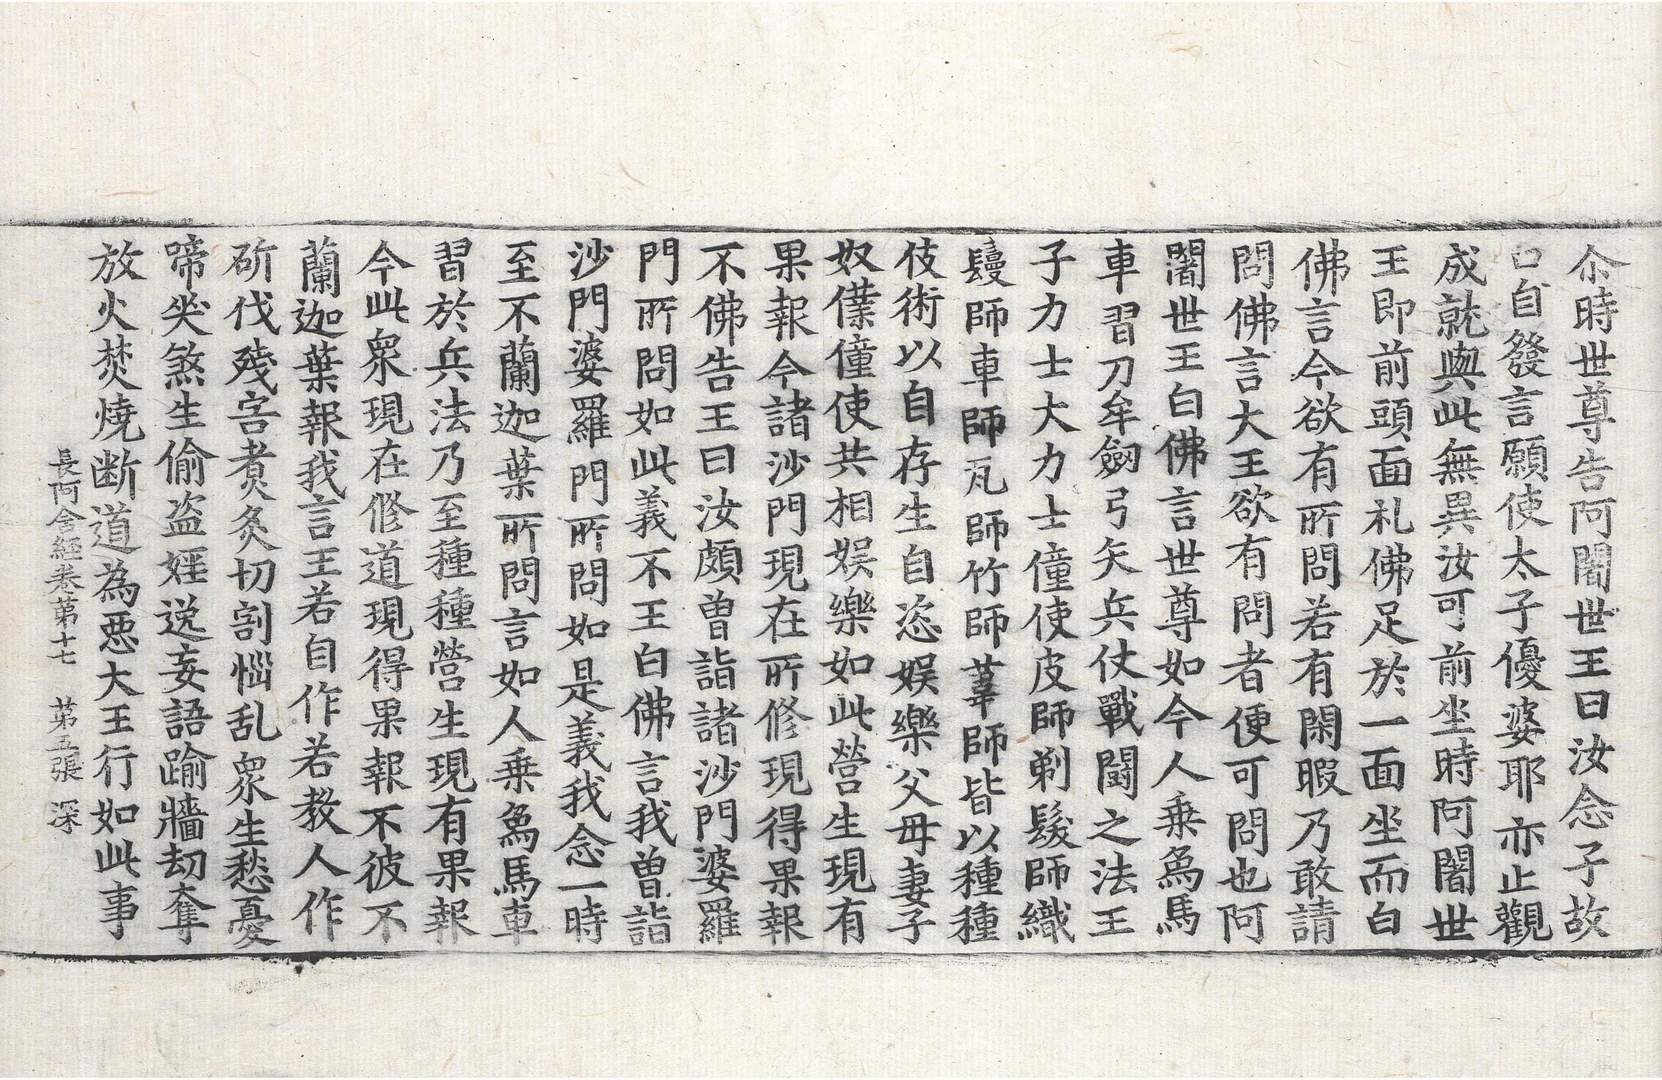 尒時世尊告阿闍世王曰汝念子故
口自發言願使太子優婆耶亦止觀
成就與此無異汝可前坐時阿闍世
王即前頭面礼佛足於一面坐而白
佛言今欲有所問若有閑暇乃敢請
問佛言大王欲有問者便可問也阿
闍世王白佛言世尊如今人乗為馬
車習刀牟劒弓矢兵仗戰鬪之法王
子力士大力士僮使皮師剃髮師織
鬘師車師瓦師竹師葦師皆以種種
伎術以自存生自恣娛樂父母妻子
奴僕僮使共相娛樂如此營生現有
果報今諸沙門現在所修現得果報
不佛告王曰汝頗曽詣諸沙門婆羅
門所問如此義不王白佛言我曽詣
沙門婆羅門所問如是義我念一時
至不蘭迦葉所問言如人乗為馬車
習於兵法乃至種種營生現有果報
今此衆現在修道現得果報不彼不
蘭迦葉報我言王若自作若教人作
斫伐殘害煮炙切割惱乱衆生愁憂
啼哭煞生偷盜婬逸妄語踰牆劫奪
放火焚燒断道為惡大王行如此事
長阿含經卷第十七 第五張 深